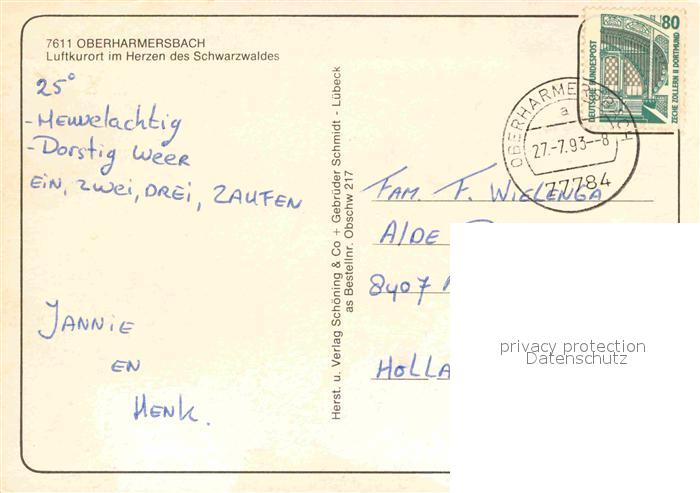 7611 OBERHARMERSBACH
Luftkurort im Herzen des Schwarzwaldes
25°
-Heuvelachtig
-Dorstig weer
EIN, ZWEI, DREI, ZAUFEN
JANNIE
EN
HENK.
Herst. u. Verlag Schöning & Co + Gebrüder Schmidt - Lübeck
as Bestellnr. Obschw 217
80
DEUTSCHE BUNDESPOST
ZECHE ZOLLERN II DORTMUND
OBERHARMERSBACH
a
27.-7.93--8
77784
FAM. F. WIELENGA
A/DE
8407
HOLLA
privacy protection
Datenschutz